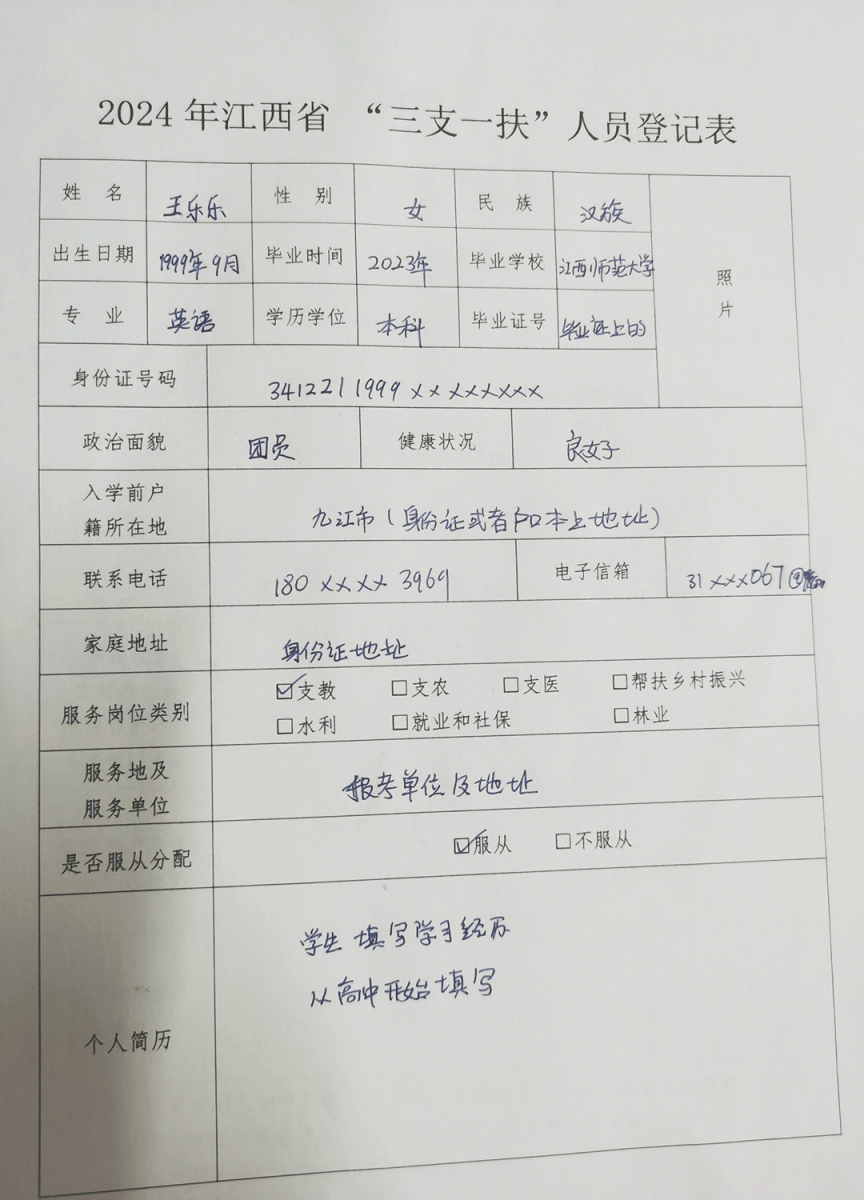 2024年江西省“三支一扶”人员登记表
姓 名 王乐乐 性 别 女 民 族 汉族
照片
出生日期 1999年9月 毕业时间 2023年 毕业学校 江西师范大学
专 业 英语 学历学位 本科 毕业证号 毕业证上的
身份证号码 3412211999×××××××
政治面貌 团员 健康状况 良好
入学前户
籍所在地 九江市(身份证或者户口本上地址)
联系电话 180××××3969 电子信箱 31×××067@
家庭地址 身份证地址
服务岗位类别 ☑支教 □支农 □支医 □帮扶乡村振兴
□水利 □就业和社保 □林业
服务地及
服务单位 报考单位及地址
是否服从分配 ☑服从 □不服从
个人简历 学生填写学习经历
从高中开始填写